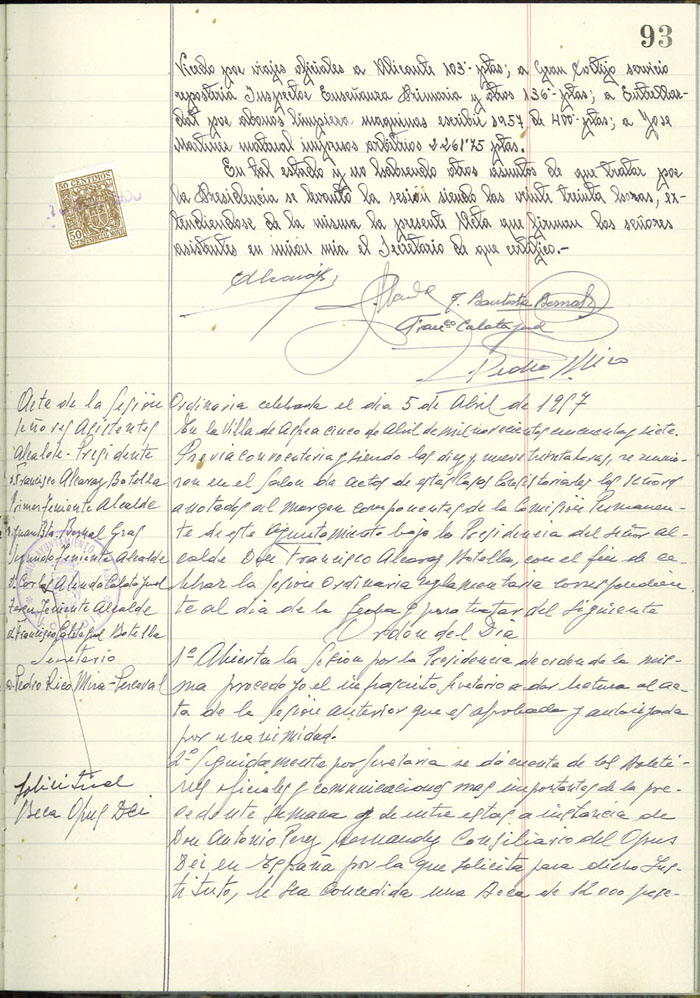 93
por viajes oficiales a Alicante 103'- ptas; a Gran Cortijo servicio
reposteria Inspector Enseñanza Primaria y otros 136'- ptas; a
por abonos limpieza maquinas escribir 1957 de 400'- ptas; a Jose
Martinez material impresos arbitrios 2.261'75 ptas.
En tal estado y no habiendo otros asuntos de que tratar por
la Presidencia se levantó la sesión siendo las veinte treinta horas, ex-
tendiendose de la misma la presente Acta que firman los señores
asistentes en unión mia el Secretario de que certifico.-
50 CENTIMOS
J. Bautista Bernal
Franco Calatayud
Pedro Mira
Acta de la Sesión Ordinaria celebrada el dia 5 de Abril de 1957
Señores Asistentes
Alcalde-Presidente
Francisco Alcaraz Botella
Primer Teniente Alcalde
Juan Bta Bernal Gras
Segundo Teniente Alcalde
Calatayud
Tercer Teniente Alcalde
D. Francisco Calatayud Botella
Secretario
D. Pedro Rico Mira-Perceval
En la Villa de Aspe a cinco de Abril de mil novecientos cincuenta y siete.
Previa convocatoria y siendo las diez y nueve treinta horas, se reunie-
ron en el Salon de actos de estas Casas Consistoriales los Señores
anotados al margen componentes de la Comisión Permanen-
te de este Ayuntamiento bajo la Presidencia del señor al-
calde Don Francisco Alcaraz Botella, con el fin de ce-
lebrar la sesion Ordinaria reglamentaria correspondien-
te al dia de la fecha y para tratar del siguiente
Orden del Dia
1º Abierta la Sesion por la Presidencia de orden de la mis-
ma procedo yo el infrascrito Secretario a dar lectura al ac-
ta de la Sesion anterior que es aprobada y autorizada
por unanimidad.
Solicitud
Beca Opus Dei
2º Seguidamente por Secretaria se da cuenta de los Boleti-
nes oficiales y comunicaciones mas importantes de la pre-
cedente semana y de entre estas a instancia de
Don Antonio Perez Hernandez Consiliario del Opus
Dei en España por la que solicita para dicho Ins-
tituto, le sea concedida una Beca de 12.000 pese-